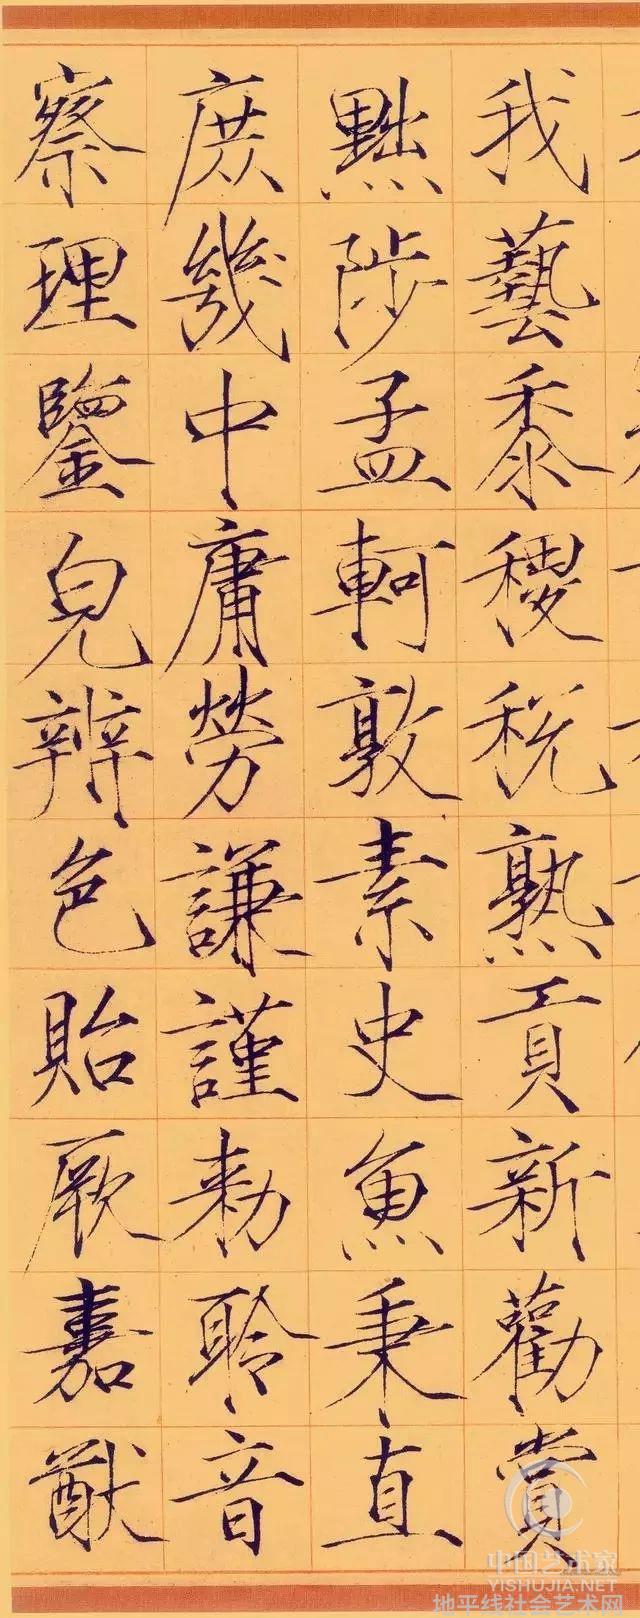 我藝黍稷稅熟貢新勸賞
黜陟孟軻敦素史魚秉直
庶幾中庸勞謙謹勑聆音
察理鑒皃辨色貽厥嘉猷
中国艺术家
YISHUJIA.NET
地平线社会艺术网